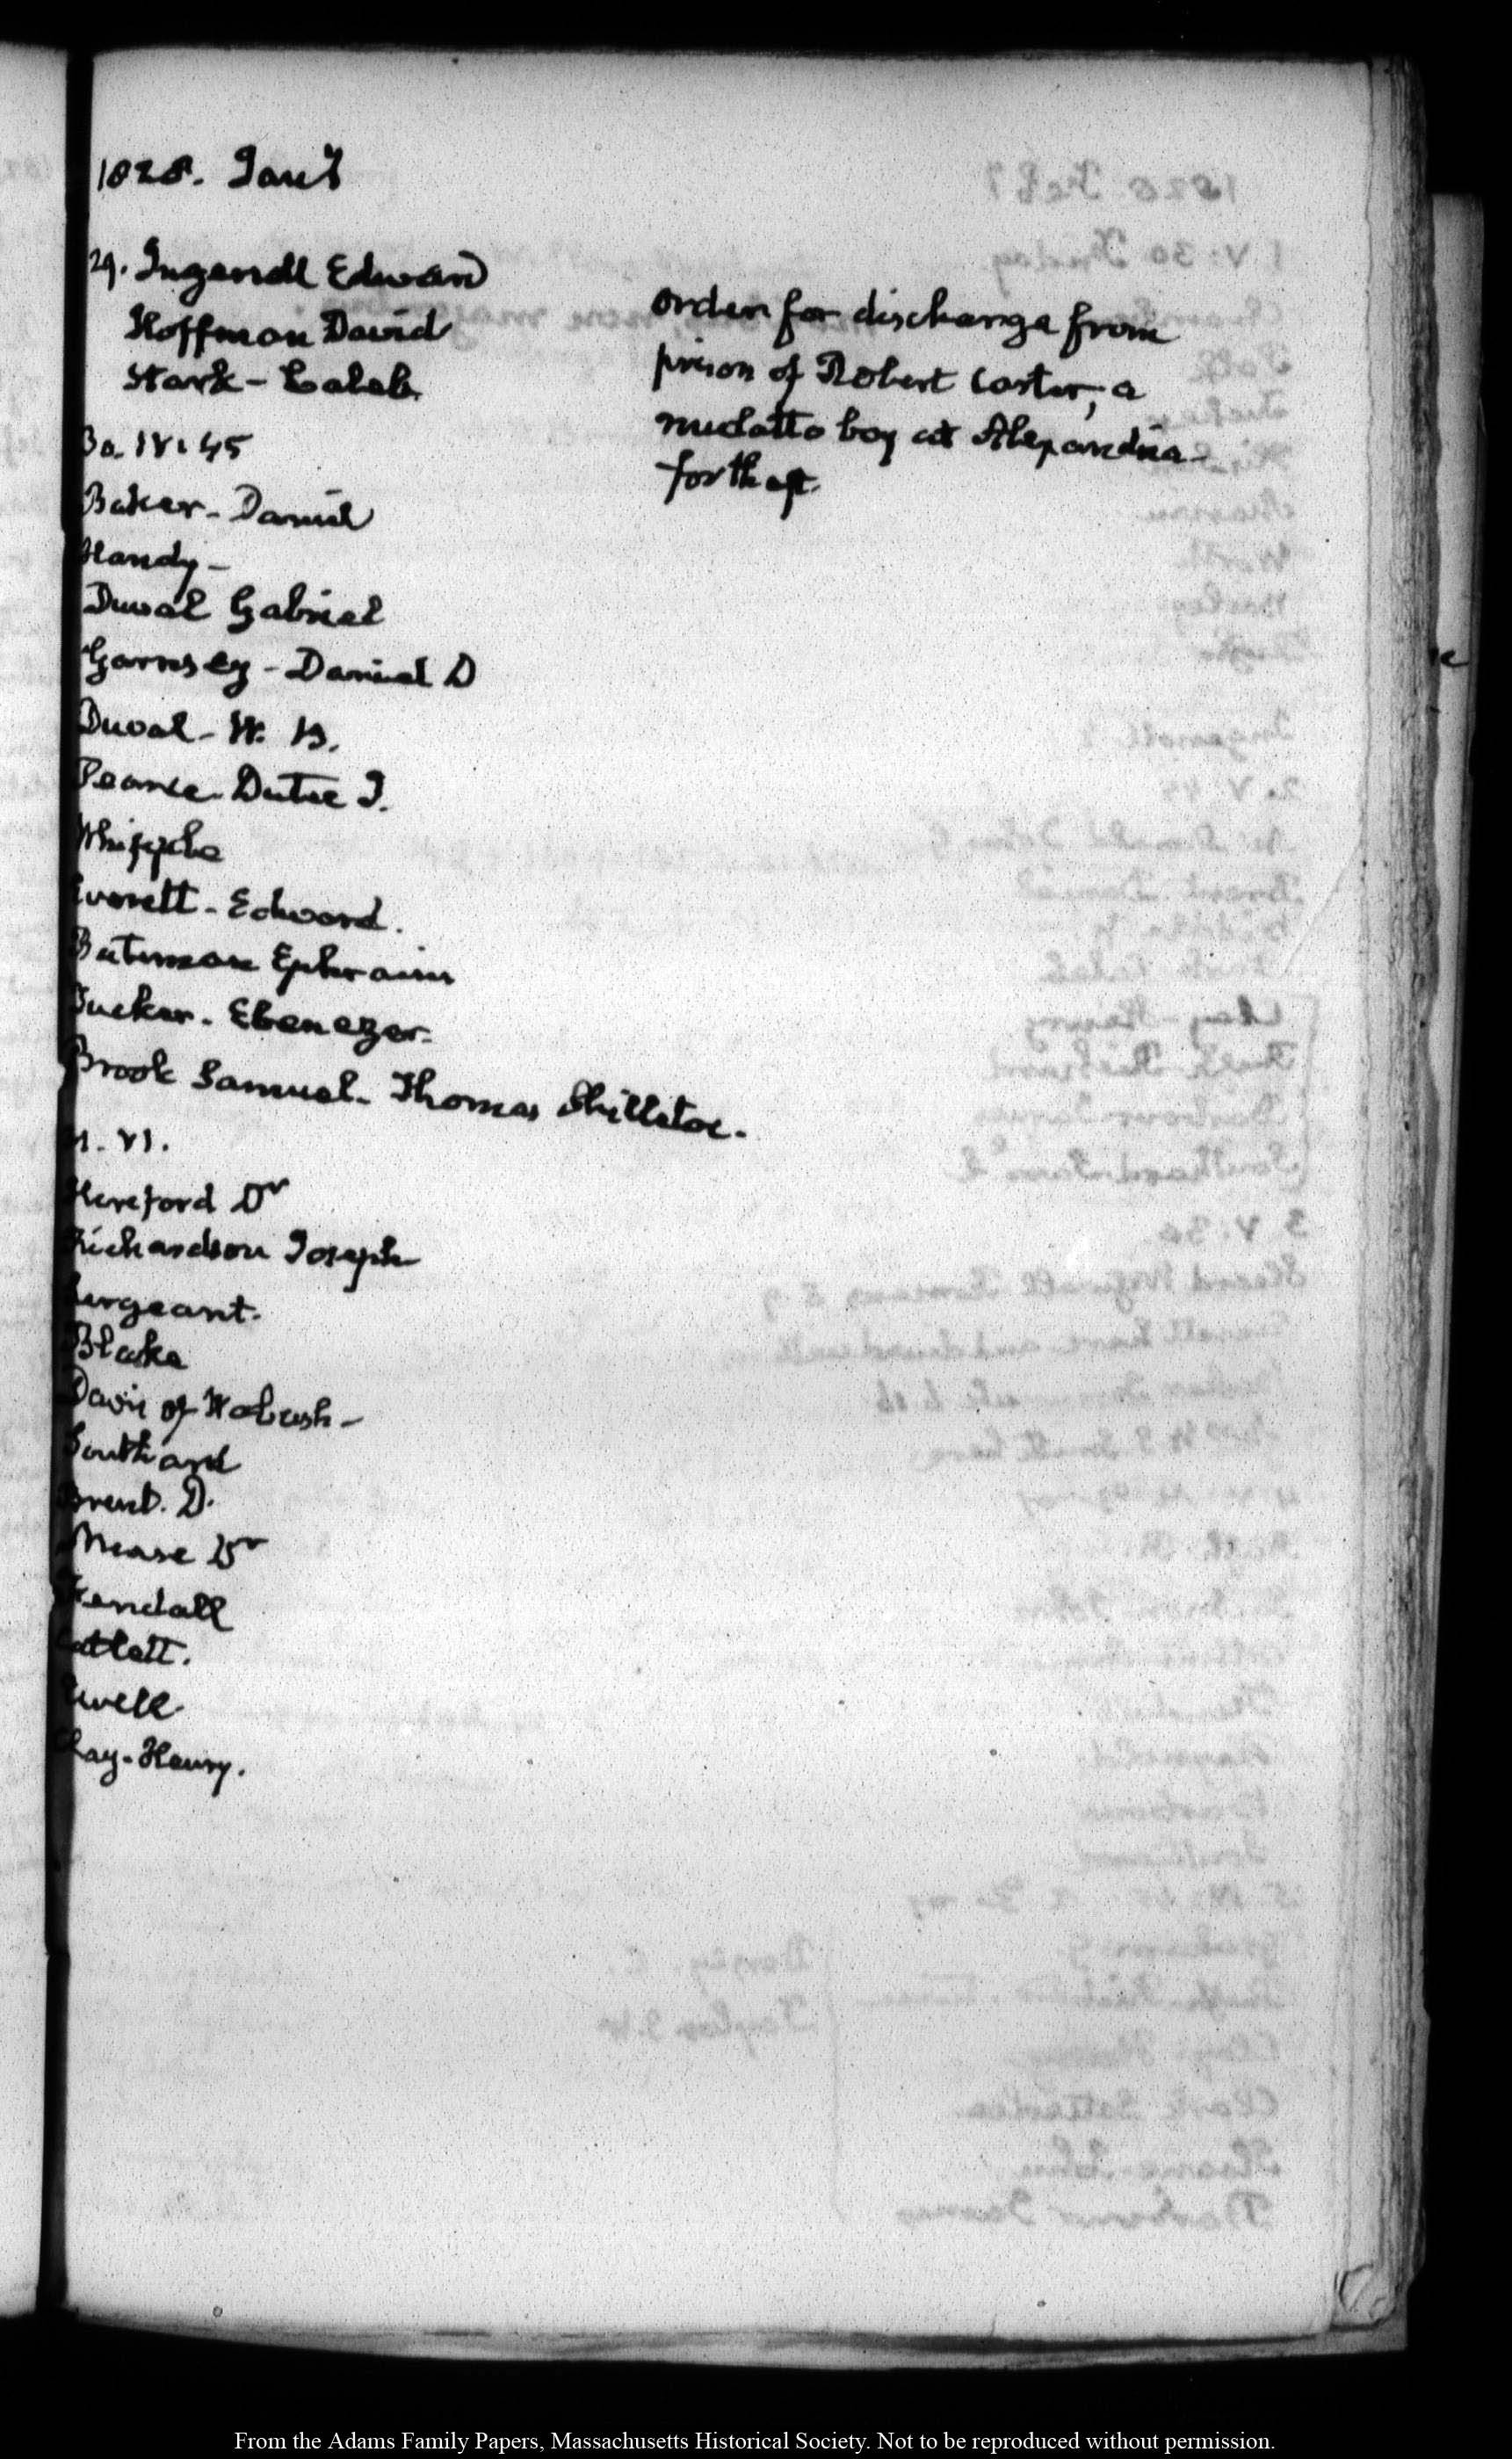 1828. Jany
29. Ingersoll Edward
Hoffman David
Stark - Caleb
30. IV: 45
Baker - Daniel
Handy -
Duval Gabriel
Garnsey - Daniel D
Duval - W. P.
Pearce. Dutee J.
Whipple
Everett - Edward.
Bateman Ephraim
Tucker. Ebenezer.
Brook Samuel. Thomas Shillitoe.
31. VI.
Hereford Dr
Richardson Joseph
Sergeant.
Blake
Davis of Wabash -
Southard
Brent. D.
Mease Dr
Kendall
Catlett.
Ewell.
Clay - Henry.
Order for discharge from
prison of Robert Carter, a
mulatto boy at Alexandria -
for theft.
From the Adams Family Papers, Massachusetts Historical Society. Not to be reproduced without permission.